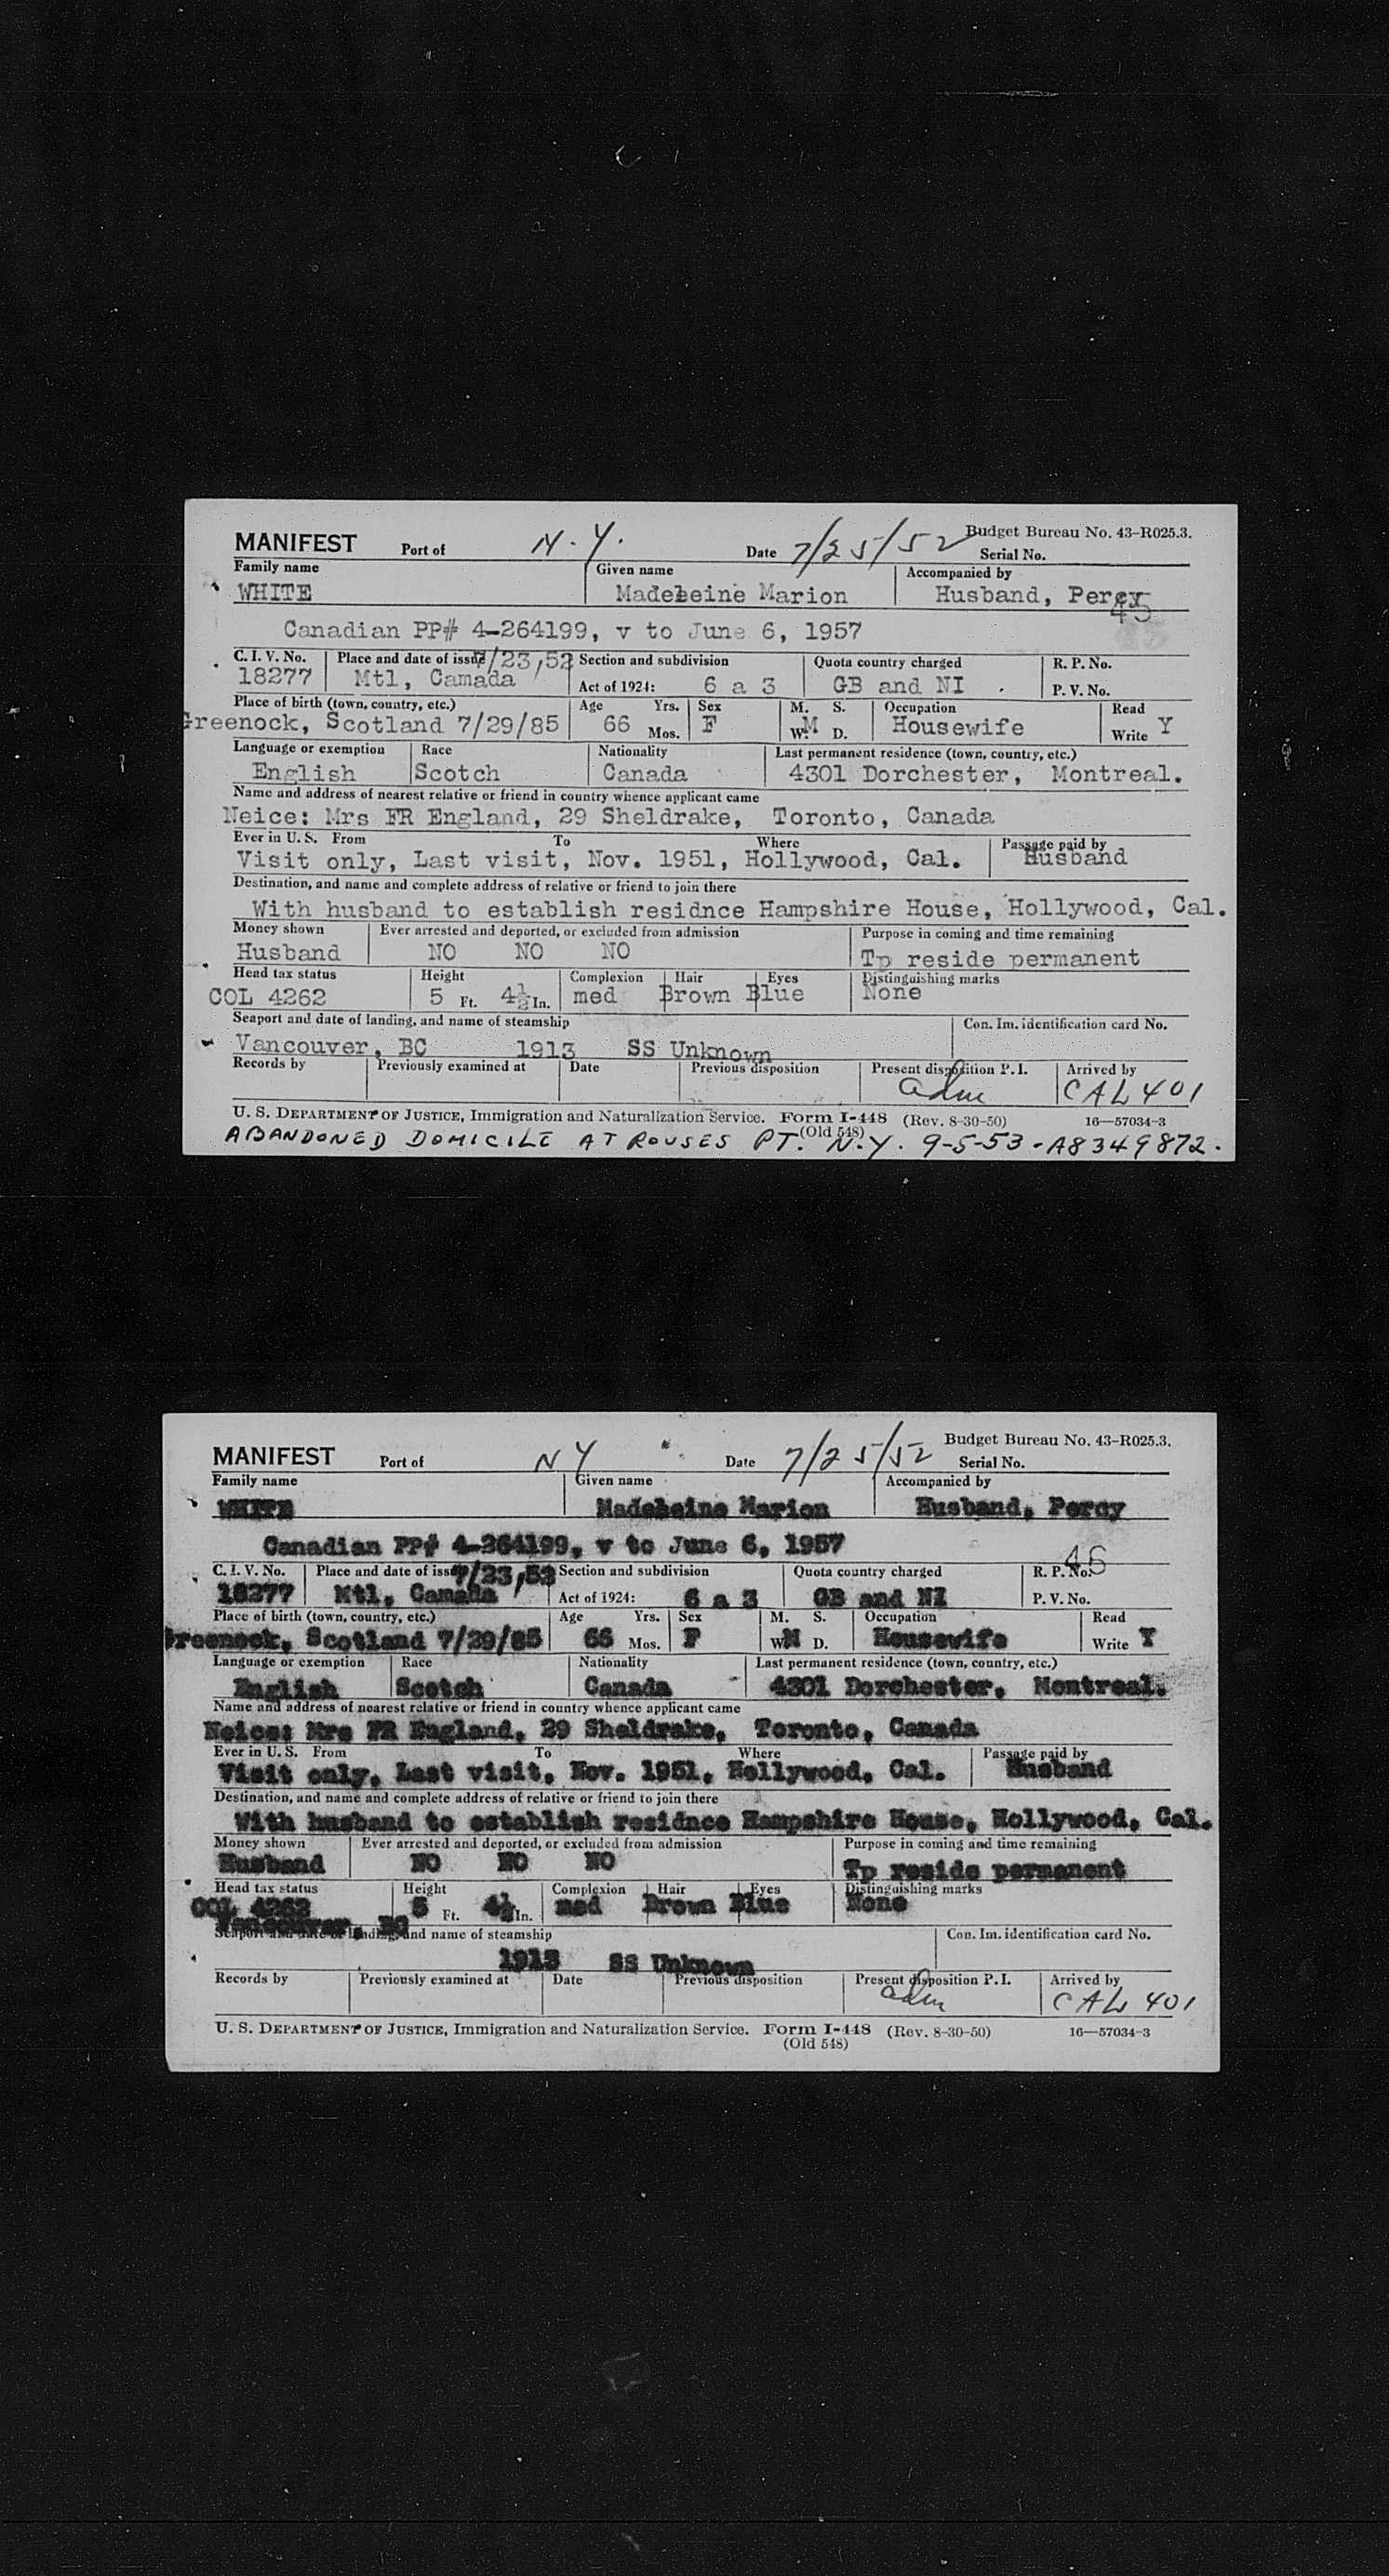 MANIFEST Port of N.Y. Date 7/25/52 Budget Bureau No. 43-R025.3.
Serial No.
Family name Given name Accompanied by
WHITE Madeleine Marion Husband, Percy
45
Canadian PP# 4-264199, v to June 6, 1957
C. I. V. No. Place and date of issue 7/23,52 Section and subdivision Quota country charged R. P. No.
18277 Mtl, Camada Act of 1924: 6 a 3 GB and NI . P. V. No.
Place of birth (town, country, etc.) Age Yrs. Sex M. S. Occupation Read
Greenock, Scotland 7/29/85 66 Mos. F W. M D. Housewife Write Y
Language or exemption Race Nationality Last permanent residence (town, country, etc.)
English Scotch Canada 4301 Dorchester, Montreal.
Name and address of nearest relative or friend in country whence applicant came
Neice: Mrs FR England, 29 Sheldrake, Toronto, Canada
Ever in U. S. From To Where Passage paid by
Visit only, Last visit, Nov. 1951, Hollywood, Cal. Husband
Destination, and name and complete address of relative or friend to join there
With husband to establish residnce Hampshire House, Hollywood, Cal.
Money shown Ever arrested and deported, or excluded from admission Purpose in coming and time remaining
Husband NO NO NO Tp reside permanent
Head tax status Height Complexion Hair Eyes Distinguishing marks
COL 4262 5 Ft. 4½ In. med Brown Blue None
Seaport and date of landing, and name of steamship Con. Im. identification card No.
Vancouver, BC 1913 SS Unknown
Records by Previously examined at Date Previous disposition Present disposition P. I. Arrived by
adm CAL 401
U. S. DEPARTMENT OF JUSTICE, Immigration and Naturalization Service. Form I-448 (Rev. 8-30-50) 16—57034-3
(Old 548)
ABANDONED DOMICILE AT ROUSES PT. N.Y. 9-5-53-A8349872.
MANIFEST Port of NY Date 7/25/52 Budget Bureau No. 43-R025.3.
Serial No.
Family name Given name Accompanied by
WHITE Madeleine Marion Husband, Percy
Canadian PP# 4-264199, v to June 6, 1957
46
C. I. V. No. Place and date of issue 7/23,52 Section and subdivision Quota country charged R. P. No.
18277 Mtl, Camada Act of 1924: 6 a 3 GB and NI P. V. No.
Place of birth (town, country, etc.) Age Yrs. Sex M. S. Occupation Read
Greenock, Scotland 7/29/85 66 Mos. F W. M D. Housewife Write Y
Language or exemption Race Nationality Last permanent residence (town, country, etc.)
English Scotch Canada 4301 Dorchester, Montreal.
Name and address of nearest relative or friend in country whence applicant came
Neice: Mrs FR England, 29 Sheldrake, Toronto, Canada
Ever in U. S. From To Where Passage paid by
Visit only, Last visit, Nov. 1951, Hollywood, Cal. Husband
Destination, and name and complete address of relative or friend to join there
With husband to establish residnce Hampshire House, Hollywood, Cal.
Money shown Ever arrested and deported, or excluded from admission Purpose in coming and time remaining
Husband NO NO NO Tp reside permanent
Head tax status Height Complexion Hair Eyes Distinguishing marks
COL 4262 5 Ft. 4½ In. med Brown Blue None
Vancouver, BC
Seaport and date of landing, and name of steamship Con. Im. identification card No.
1913 SS Unknown
Records by Previously examined at Date Previous disposition Present disposition P. I. Arrived by
adm CAL 401
U. S. DEPARTMENT OF JUSTICE, Immigration and Naturalization Service. Form I-448 (Rev. 8-30-50) 16—57034-3
(Old 548)